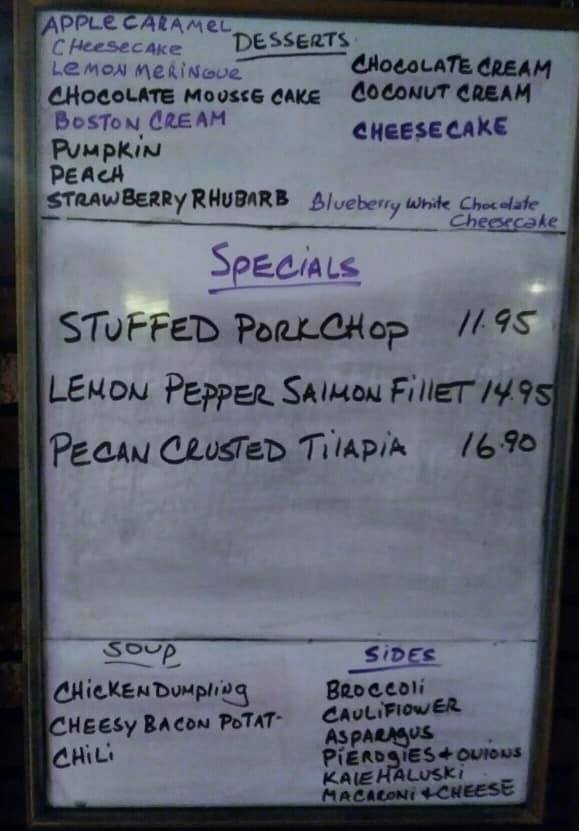 DESSERTS
APPLE CARAMEL
CHeeseCAKE
LeMON MeRINGUe
CHOCOLATE MOUSSE CAKE
BOSTON CREAM
PUMPKIN
PEACH
STRAWBERRY RHUBARB
CHOCOLATE CREAM
COCONUT CREAM
CHEESECAKE
Blueberry White Chocolate
Cheesecake
SPECiALS
STUFFED PORKCHOP 11.95
LEMON PEPPER SAlMON FillET 14.95
PECAN CRUSTED TilAPiA 16.90
SOUP
CHiCKEN DUMPling
CHEESY BACON POTAT-
CHiLi
SiDES
BROCCOli
CAULiFlOWER
ASPARAGUS
PiEROgiES + ONIONS
KALE HALUSKi
MACARONi + CHEESE